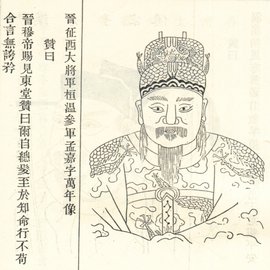 晉征西大將軍桓溫參軍孟嘉字萬年像
贊曰
晉穆帝賜見東堂贊曰爾自總髮至於知命行不苟
合言無誇矜